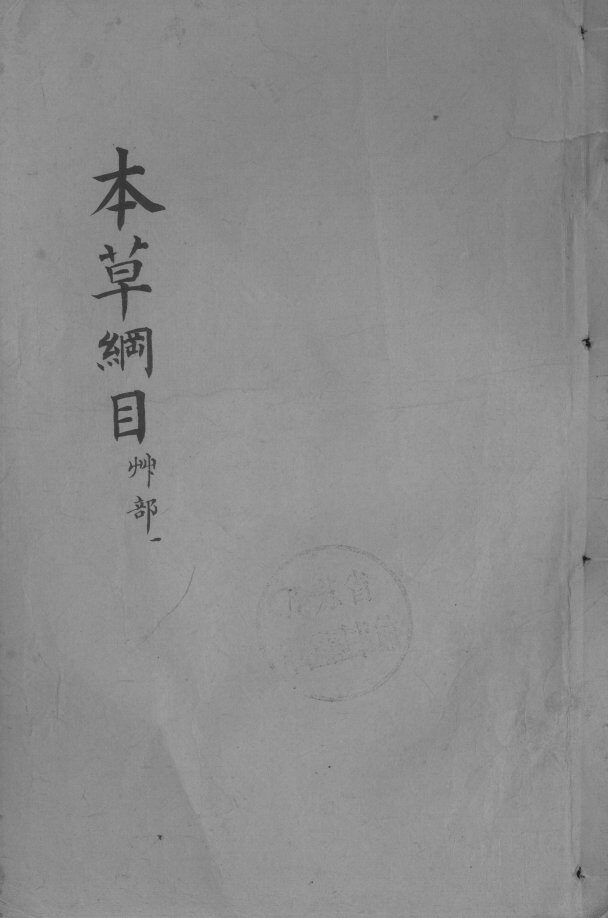 本草綱目
艸部一